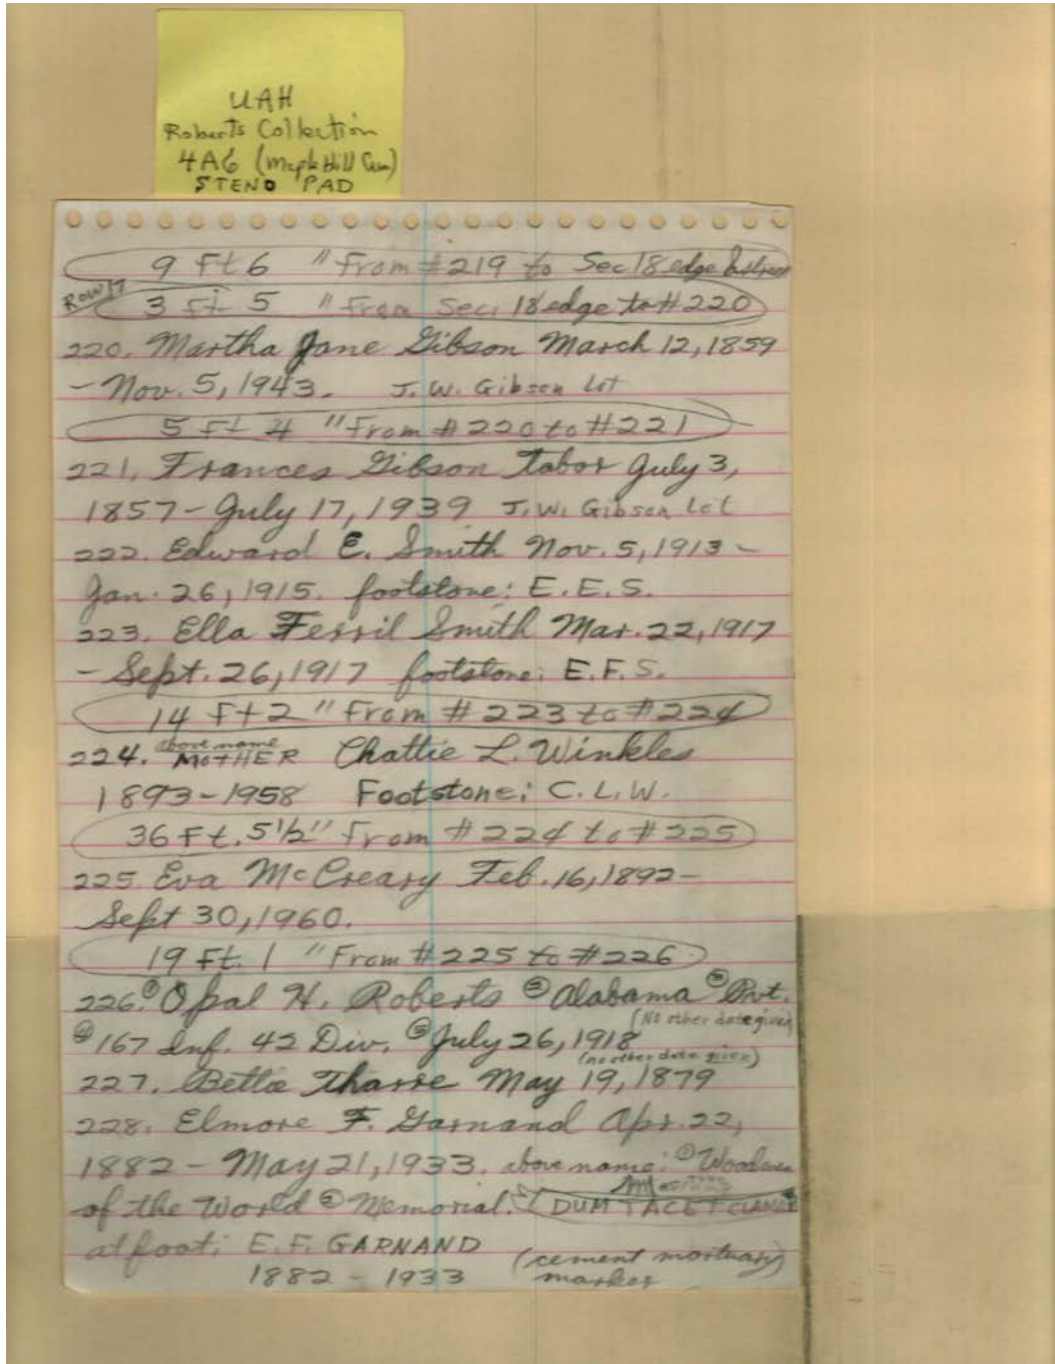 UAH
Roberts Collection
4A6 (Maple Hill Cem)
STENO PAD
9 Ft 6 " From #219 to Sec 18 edge
ROW 17
3 ft 5 " From Sec. 18 edge to #220
220. Martha Jane Gibson March 12, 1859
- Nov. 5, 1943. J.W. Gibson Lot
5 Ft 4 " From #220 to #221
221. Frances Gibson Tabor July 3,
1857 - July 17, 1939 J.W. Gibson Lot
222. Edward E. Smith Nov. 5, 1913 -
Jan. 26, 1915. footstone: E.E.S.
223. Ella Ferril Smith Mar. 22, 1917
- Sept. 26, 1917 footstone: E.F.S.
14 Ft 2 " From #223 to #224
above name
224. MOTHER Chattie L. Winkles
1893-1958 Footstone: C.L.W.
36 Ft. 5 1/2" From #224 to #225
225. Eva McCreary Feb. 16, 1892-
Sept 30, 1960.
19 Ft. 1 " From #225 to #226
226. ① Opal H. Roberts ② Alabama ③ Pvt.
(No other date given)
④ 167 Inf. 42 Div. ⑤ July 26, 1918
(no other date given)
227. Bettie Tharpe May 19, 1879
228. Elmore F. Garnand Apr. 22,
1882 - May 21, 1933. above name: ① Woodmen
of the World ② Memorial. DUM TACET CLAMAT
at foot: E.F. GARNAND (cement mortuary)
1882 - 1933 marker